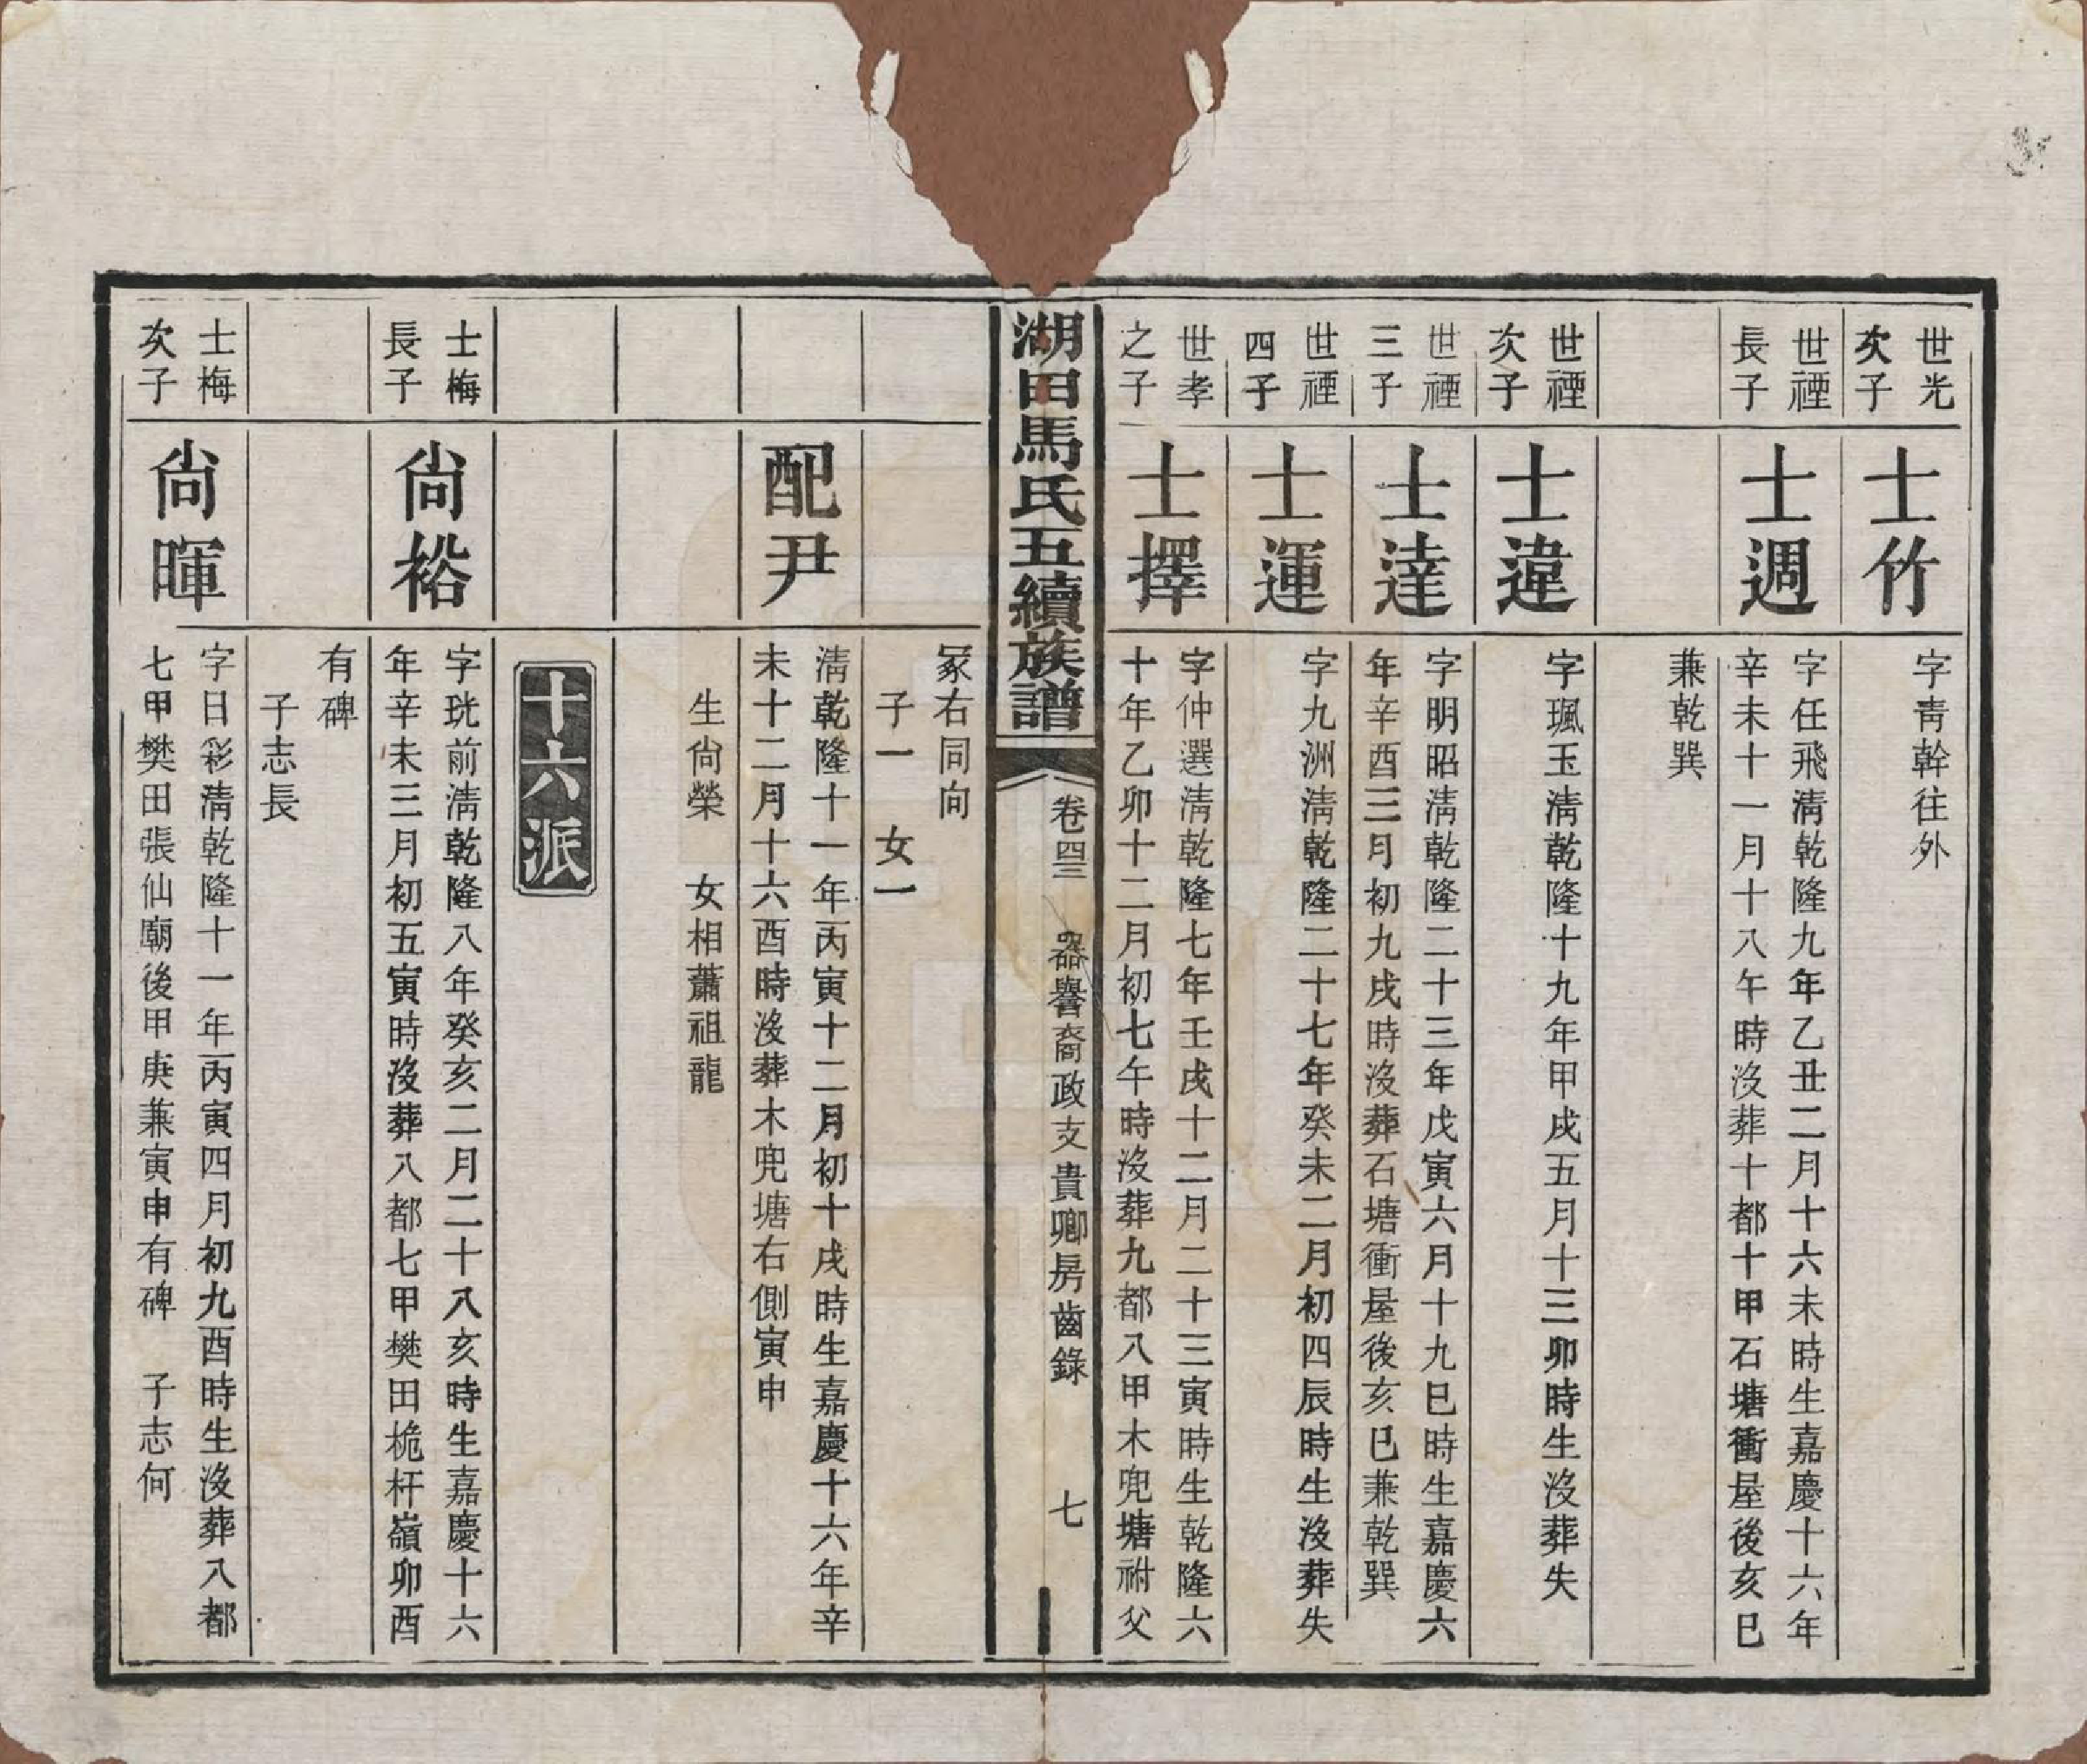 世光
次子
士竹
字青幹往外
世禋
長子
士週
字任飛淸乾隆九年乙丑二月十六未時生嘉慶十六年
辛未十一月十八午時沒葬十都十甲石塘衝屋後亥巳
兼乾巽
世禋
次子
士違
字珮玉淸乾隆十九年甲戌五月十三卯時生沒葬失
世禋
三子
士達
字明昭淸乾隆二十三年戊寅六月十九巳時生嘉慶六
年辛酉三月初九戌時沒葬石塘衝屋後亥巳兼乾巽
世禋
四子
士運
字九洲淸乾隆二十七年癸未二月初四辰時生沒葬失
世孝
之子
士擇
字仲選淸乾隆七年壬戌十二月二十三寅時生乾隆六
十年乙卯十二月初七午時沒葬九都八甲木兜塘祔父
湖田馬氏五續族譜
卷四三 器譽裔政支貴卿房齒錄 七
冢右同向
子一 女一
配尹
淸乾隆十一年丙寅十二月初十戌時生嘉慶十六年辛
未十二月十六酉時沒葬木兜塘右側寅申
生尙榮 女相蕭祖龍
十六派
士梅
長子
尙裕
字珖前淸乾隆八年癸亥二月二十八亥時生嘉慶十六
年辛未三月初五寅時沒葬八都七甲樊田桅杆嶺卯酉
有碑
子志長
士梅
次子
尙暉
字日彩淸乾隆十一年丙寅四月初九酉時生沒葬八都
七甲樊田張仙廟後甲庚兼寅申有碑 子志何